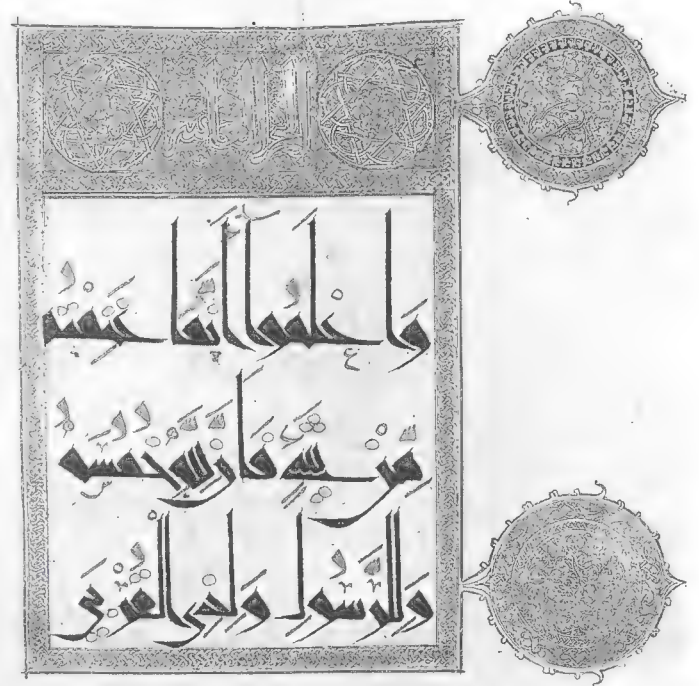 وَاعْلَمُوا أَنَّمَا غَنِمْتُمْ
مِنْ شَيْءٍ فَأَنَّ لِلَّهِ خُمُسَهُ
وَلِلرَّسُولِ وَلِذِي الْقُرْبَى